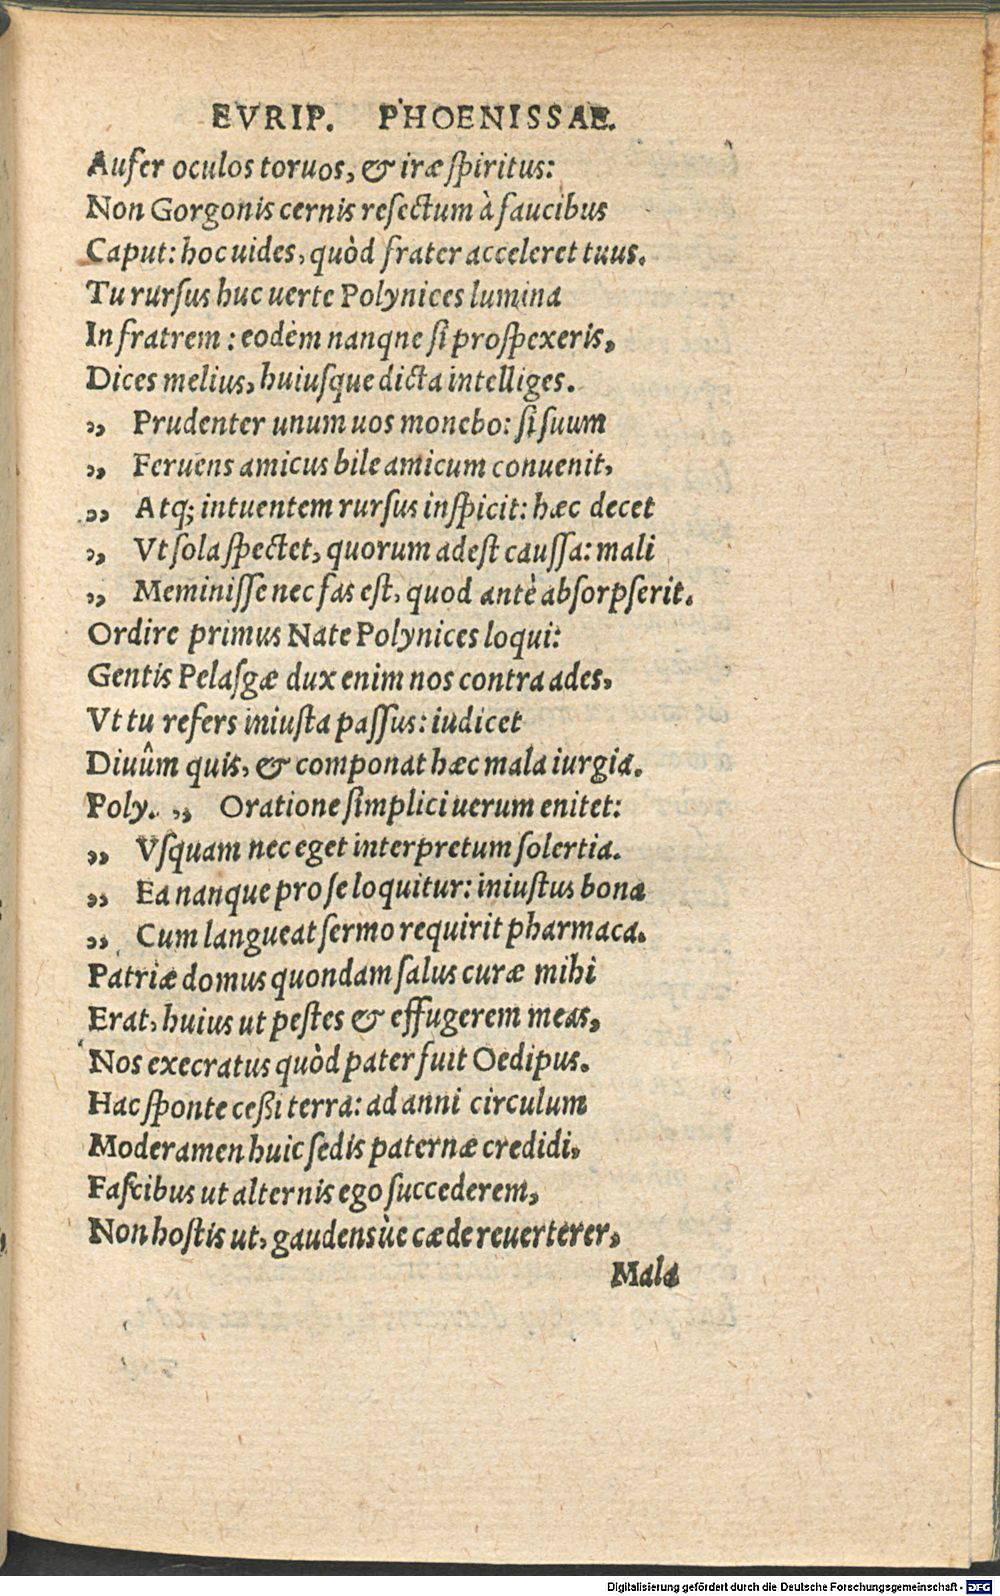 EVRIP. PHOENISSAE.
Aufer oculos toruos, & iræ ſpiritus:
Non Gorgonis cernis reſectum à faucibus
Caput: hoc uides, quòd frater acceleret tuus.
Tu rurſus huc uerte Polynices lumina
In fratrem: eodèm nanqne ſi proſpexeris,
Dices melius, huiuſque dicta intelliges.
„ Prudenter unum uos monebo: ſi ſuum
„ Feruens amicus bile amicum conuenit,
„ Atq; intuentem rurſus inſpicit: hæc decet
„ Vt ſola ſpectet, quorum adeſt cauſſa: mali
„ Meminiſſe nec fas eſt, quod antè abſorpſerit.
Ordire primus Nate Polynices loqui:
Gentis Pelaſgæ dux enim nos contra ades,
Vt tu refers iniuſta paſſus: iudicet
Diuûm quis, & componat hæc mala iurgia.
Poly. „ Oratione ſimplici uerum enitet:
„ Vſquam nec eget interpretum ſolertia.
„ Ea nanque pro ſe loquitur: iniuſtus bona
„ Cum langueat ſermo requirit pharmaca.
Patriæ domus quondam ſalus curæ mihi
Erat, huius ut peſtes & effugerem meas,
Nos execratus quòd pater fuit Oedipus.
Hac ſponte ceßi terra: ad anni circulum
Moderamen huic ſedis paternæ credidi,
Faſcibus ut alternis ego ſuccederem,
Non hoſtis ut, gaudensùe cæde reuerterer,
Mala
Digitalisierung gefördert durch die Deutsche Forschungsgemeinschaft - DFG